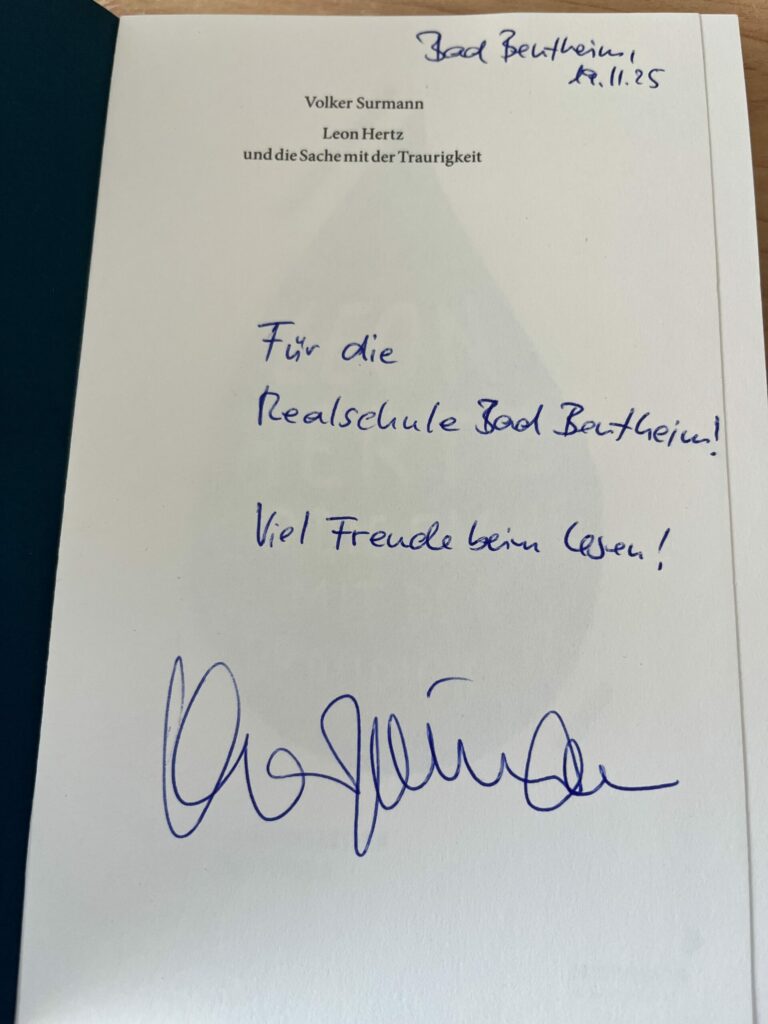 Bad Bentheim,
19.11.25
Volker Surmann
Leon Hertz
und die Sache mit der Traurigkeit
Für die
Realschule Bad Bentheim!
Viel Freude beim Lesen!